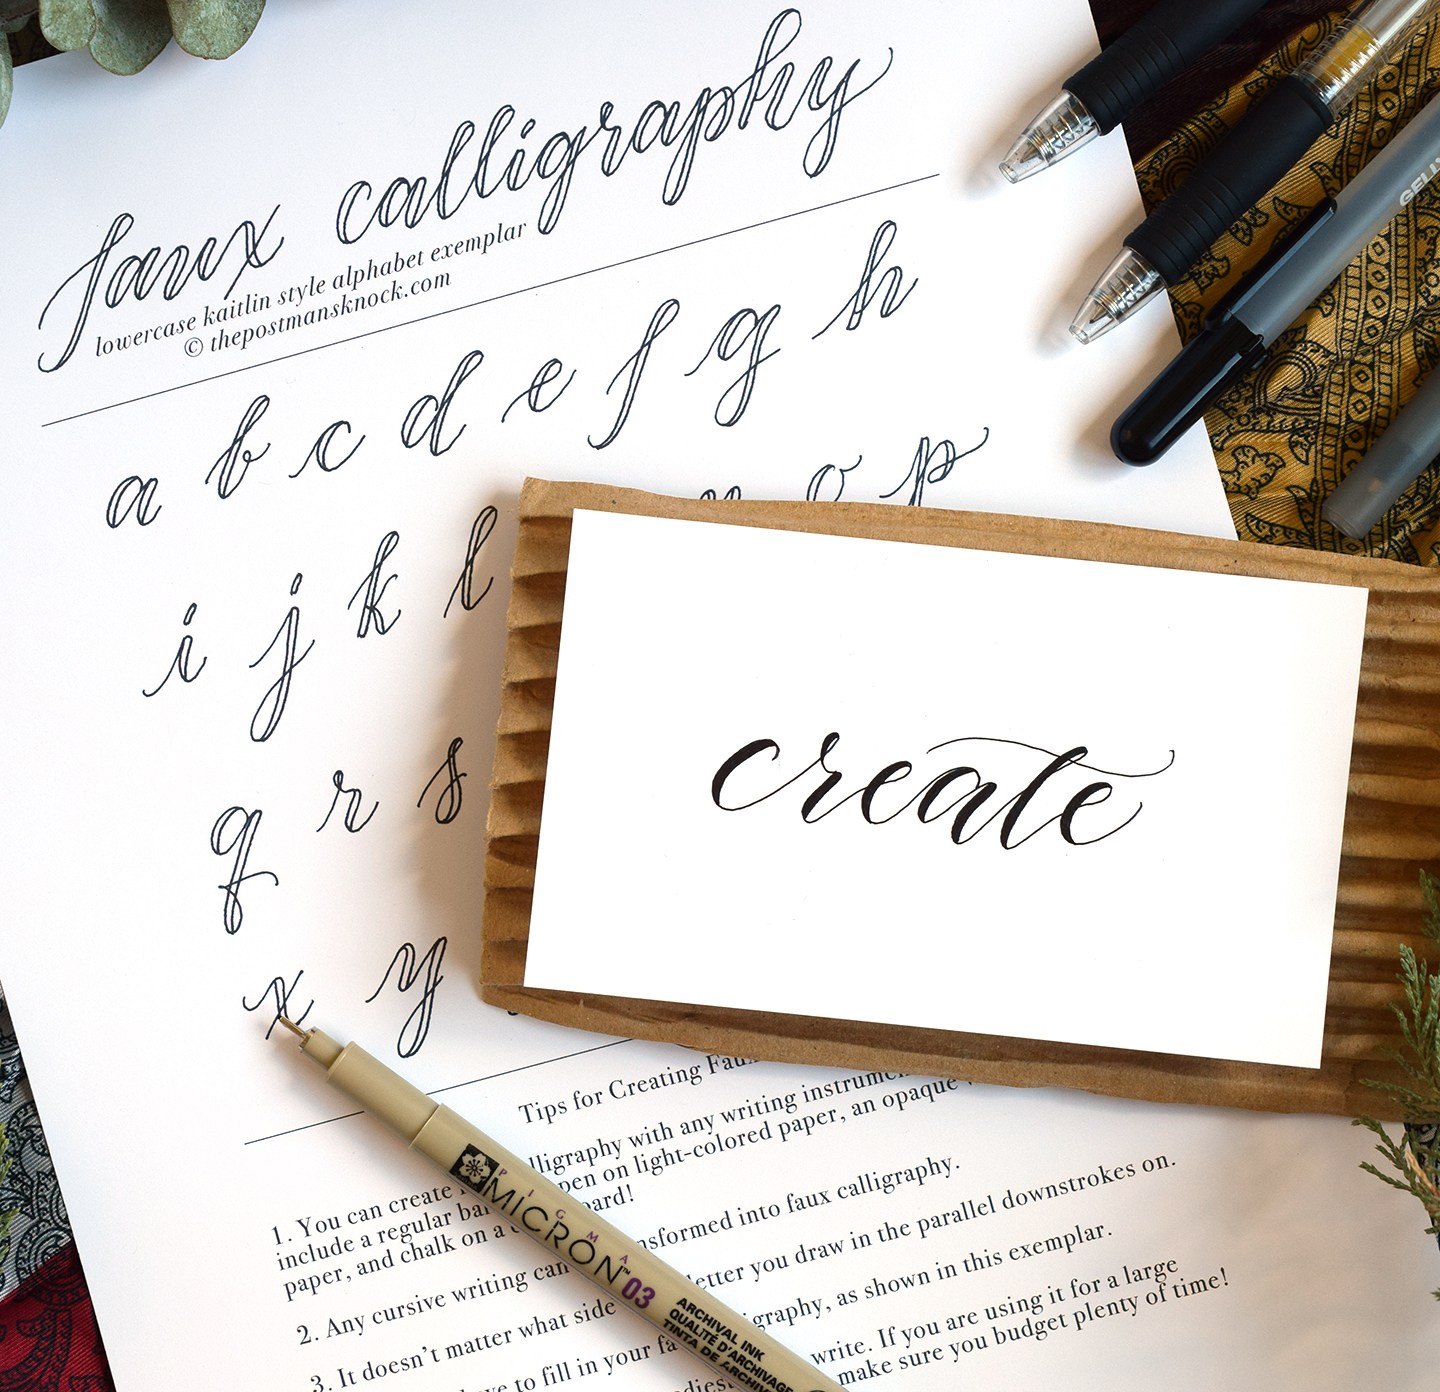 faux calligraphy
lowercase kaitlin style alphabet exemplar
© thepostmansknock.com
a b c d e f g h
i j k l n o p
q r s
x y
create
GELLY
Tips for Creating
1. You can create calligraphy with any writing
include a regular pen on light-colored paper, an opaque
paper, and chalk on a
2. Any cursive writing can transformed into faux calligraphy.
3. It doesn't matter what side letter you draw in the parallel downstrokes on.
to fill in your calligraphy, as shown in this exemplar.
write. If you are using it for a large
make sure you budget plenty of time!
PIGMA
MICRON™ 03
ARCHIVAL INK
QUALITÉ D'ARCHIVAGE
TINTA DE